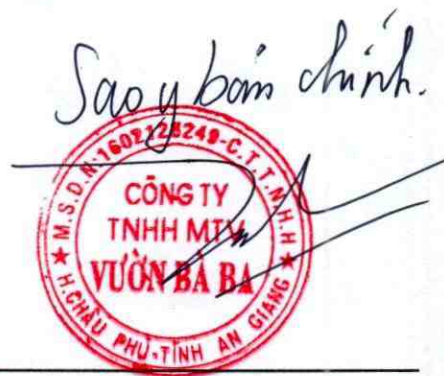 Sao y bản chính.
M.S.D.N:1602123249-C.T.T.N.H.H
CÔNG TY
TNHH MTV
VƯỜN BA BA
H.CHÂU PHÚ-TỈNH AN GIANG